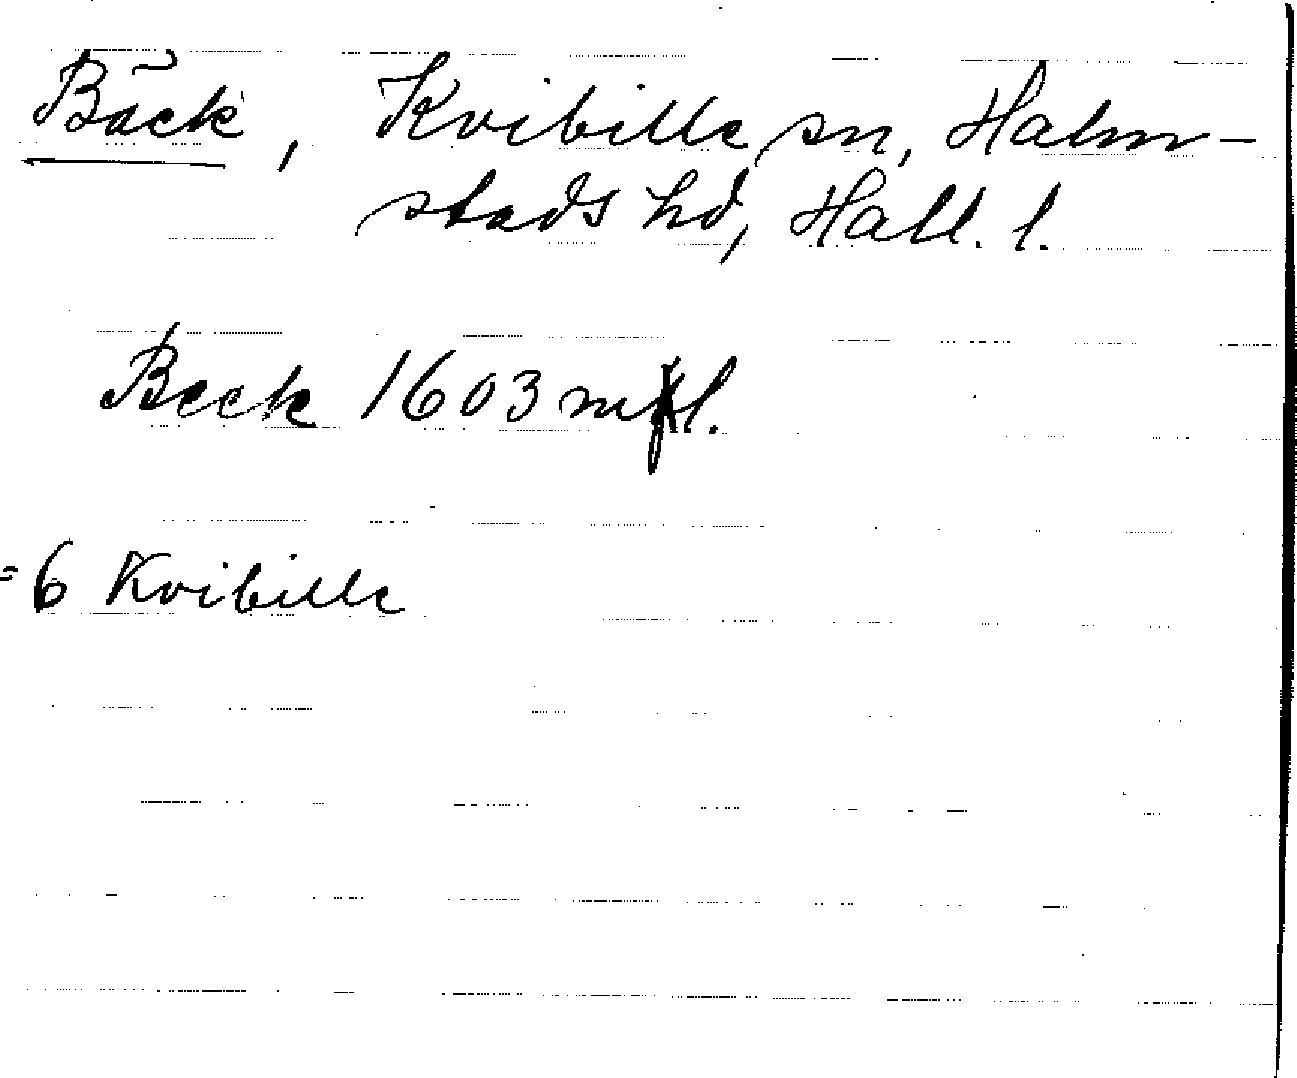 Bäck, Kvibille sn, Halm-
stads hd, Hall. l.
Beck 1603 mfl.
=6 Kvibille